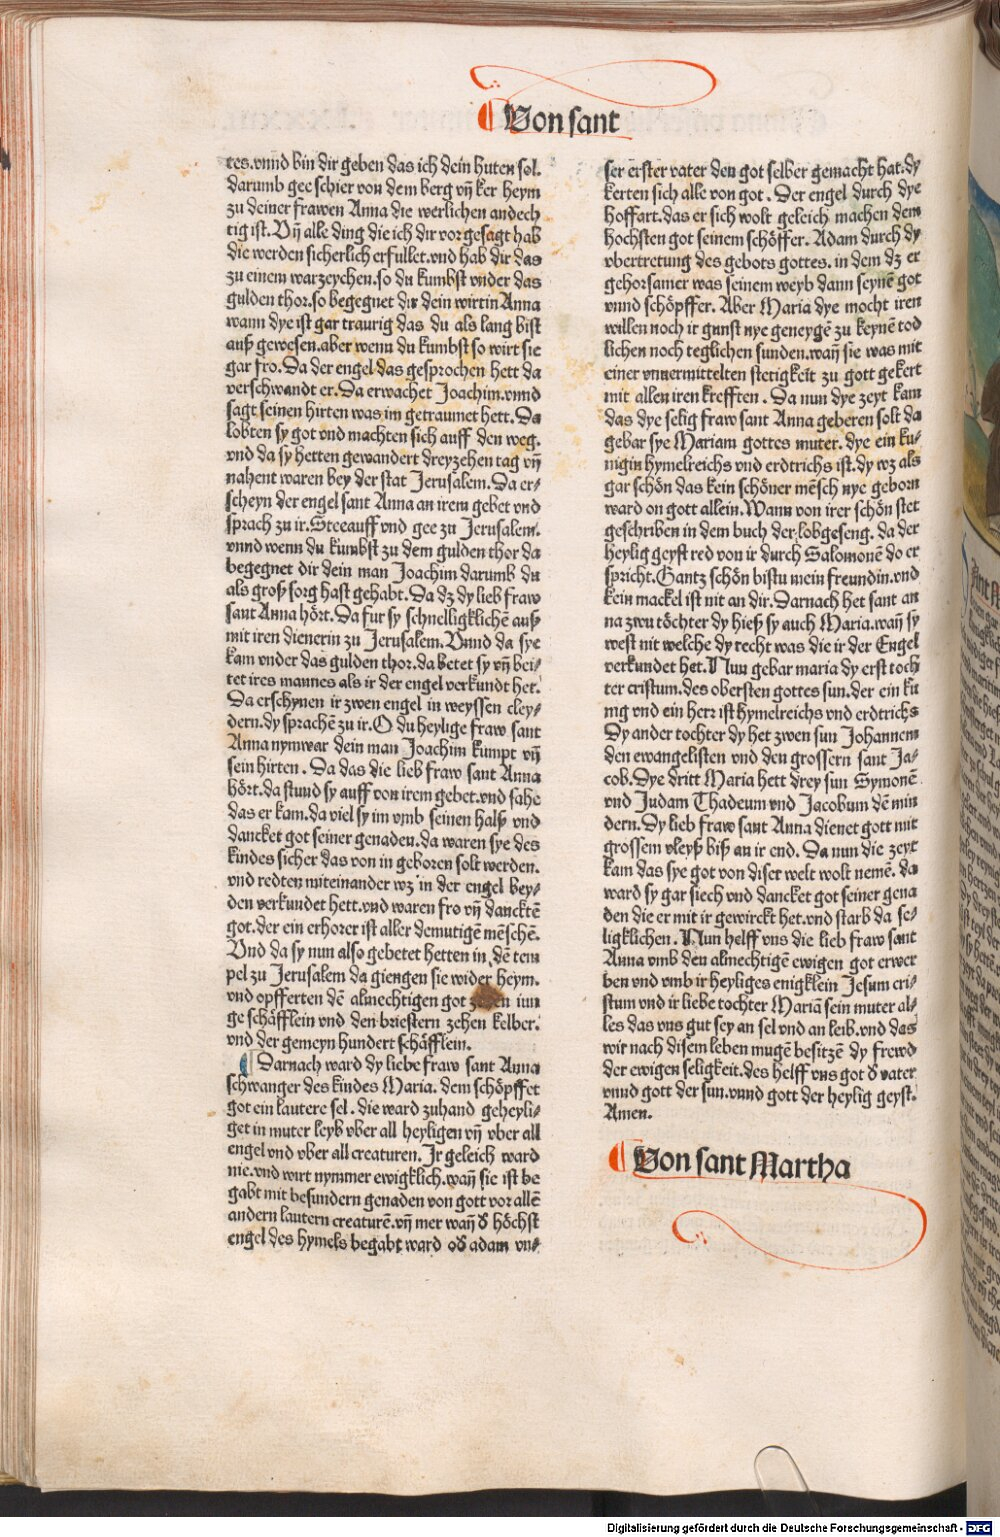 Von sant
tes.vnnd bin dir geben das ich dein huten sol.
darumb gee schier von dem berg vñ ker heym
zu deiner frawen Anna die werlichen andech
tig ist. Vñ alle ding die ich dir vor gesagt hab
die werden sicherlich erfullet.vnd hab dir das
zu einem warzeychen.so du kumbst vnder das
gulden thor.so begegnet dir dein wirtin Anna
wann dye ist gar traurig das du als lang bist
auß gewesen.aber wenn du kumbst so wirt sie
gar fro. Da der engel das gesprochen hett da
verschwandt er. Da erwachet Joachim.vnnd
sagt seinen hirten was im getraumet hett. Da
lobten sy got vnd machten sich auff den weg.
vnd da sy hetten gewandert dreyzehen tag vñ
nahent waren bey der stat Jerusalem. Da er⸗
scheyn der engel sant Anna an irem gebet vnd
sprach zu ir. Stee auff vnd gee zu Jerusalem.
vnnd wenn du kumbst zu dem gulden thor da
begegnet dir dein man Joachim darumb du
als groß sorg hast gehabt. Da dz dy lieb fraw
sant Anna hört. Da fur sy schnelligklichē auß
mit iren dienerin zu Jerusalem. Vnnd da sye
kam vnder das gulden thor.da betet sy vñ bei⸗
tet ires mannes als ir der engel verkundt het.
Da erschynen ir zwen engel in weyssen cley⸗
dern.dy sprachē zu ir. O du heylige fraw sant
Anna nym war dein man Joachim kumpt vñ
sein hirten. Da das die lieb fraw sant Anna
hört.da stund sy auff von irem gebet.vnd sahe
das er kam.da viel sy im vmb seinen halß vnd
dancket got seiner genaden.da waren sye des
kindes sicher das von in geboren solt werden.
vnd redten miteinander wz in der engel bey⸗
den verkundet hett.vnd waren fro vñ dancktē
got.der ein erhorer ist aller demutigē mēschē.
Vnd da sy nun also gebetet hetten in dē tem
pel zu Jerusalem da giengen sie wider heym.
vnd opfferten dē almechtigen got zehen iun
ge schäfflein vnd den briestern zehen kelber.
vnd der gemeyn hundert schäfflein.
Darnach ward dy liebe fraw sant Anna
schwanger des kindes Maria. dem schöpffet
got ein lautere sel. die ward zuhand geheyli⸗
get in muter leyb vber all heyligen vñ vber all
engel vnd vber all creaturen. Ir geleich ward
nie.vnd wirt nymmer ewigklich.wañ sie ist be
gabt mit besundern genaden von gott vor allē
andern lautern creaturē.vñ mer wañ d̕ höchst
engel des hymels begabt ward od̕ adam vn⸗
ser erster vater den got selber gemacht hat.dy
kerten sich alle von got. Der engel durch dye
hoffart.das er sich wolt geleich machen dem
hochsten got seinem schöffer. Adam durch dy
vbertretung des gebots gottes. in dem dz er
gehorsamer was seinem weyb dann seynē got
vnnd schöpffer. Aber Maria dye mocht iren
willen noch ir gunst nye geneygē zu keynē tod
lichen noch teglichen sunden.wañ sie was mit
einer vnuermittelten stetigkeit zu gott gekert
mit allen iren krefften. Da nun dye zeyt kam
das dye selig fraw sant Anna geberen solt da
gebar sye Mariam gottes muter. dye ein ku⸗
nigin hymelreichs vnd erdtrichs ist.dy wz als
gar schön das kein schöner mēsch nye geborn
ward on gott allein. Wann von irer schön stet
geschriben in dem buch der lobgeseng. da der
heylig geyst red von ir durch Salomonē do er
spricht. Gantz schön bistu mein freundin.vnd
kein mackel ist nit an dir. Darnach het sant an
na zwu töchter dy hieß sy auch Maria.wañ sy
west nit welche dy recht was die ir der Engel
verkundet het. Nun gebar maria dy erst toch
ter cristum.des obersten gottes sun.der ein kü
nig vnd ein herr ist hymelreichs vnd erdtrichs
Dy ander tochter dy het zwen sun Johannem
den ewangelisten vnd den grossern sant Ja⸗
cob. Dye dritt Maria hett drey sun Symonē
vnd Judam Thadeum vnd Jacobum dē min
dern. Dy lieb fraw sant Anna dienet gott mit
grossem vleyß biß an ir end. Da nun die zeyt
kam das sye got von diser welt wolt nemē. da
ward sy gar siech vnd dancket got seiner gena
den die er mit ir gewirckt het.vnd starb da se⸗
ligklichen. Nun helff vns die lieb fraw sant
Anna vmb den almechtigē ewigen got erwer
ben vnd vmb ir heyliges enigklein Jesum cri⸗
stum vnd ir liebe tochter Mariā sein muter al⸗
les das vns gut sey an sel vnd an leib.vnd das
wir nach disem leben mugē besitzē dy frewd
der ewigen seligkeit.des helff vns got d̕ vater
vnnd gott der sun.vnnd gott der heylig geyst.
Amen.
Von sant Martha
Digitalisierung gefördert durch die Deutsche Forschungsgemeinschaft - DFG